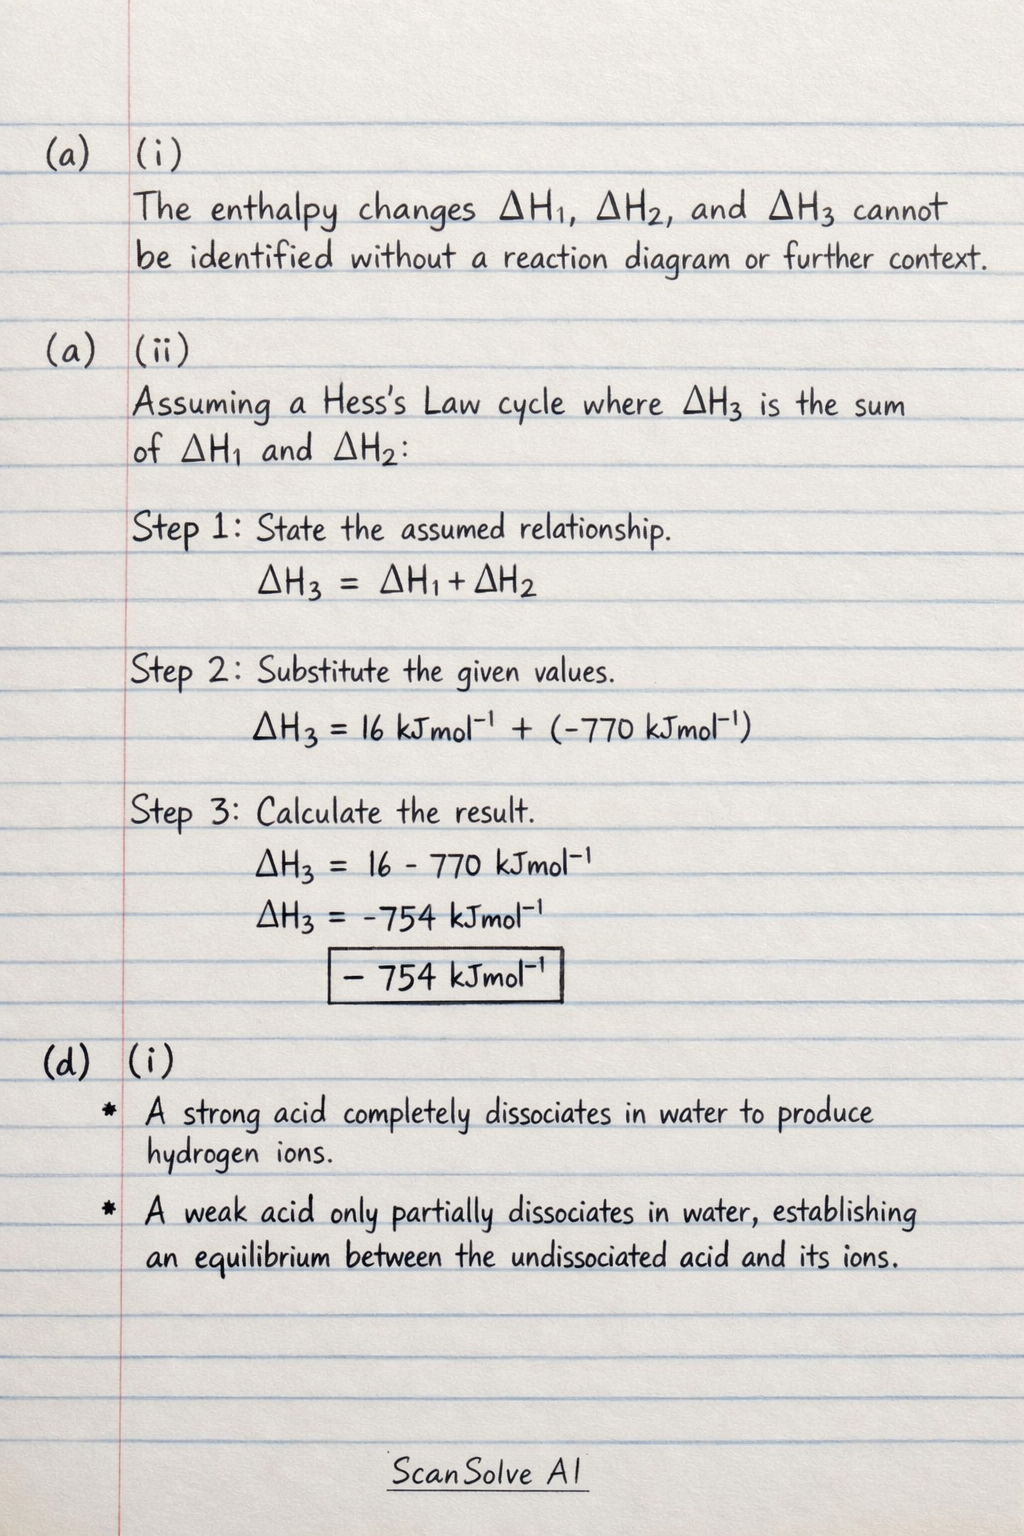 (a) (i)
The enthalpy changes ΔH₁, ΔH₂, and ΔH₃ cannot
be identified without a reaction diagram or further context.
(a) (ii)
Assuming a Hess's Law cycle where ΔH₃ is the sum
of ΔH₁ and ΔH₂:
Step 1: State the assumed relationship.
ΔH₃ = ΔH₁ + ΔH₂
Step 2: Substitute the given values.
ΔH₃ = 16 kJmol⁻¹ + (-770 kJmol⁻¹)
Step 3: Calculate the result.
ΔH₃ = 16 - 770 kJmol⁻¹
ΔH₃ = -754 kJmol⁻¹
- 754 kJmol⁻¹
(d) (i)
* A strong acid completely dissociates in water to produce
hydrogen ions.
* A weak acid only partially dissociates in water, establishing
an equilibrium between the undissociated acid and its ions.
ScanSolve AI